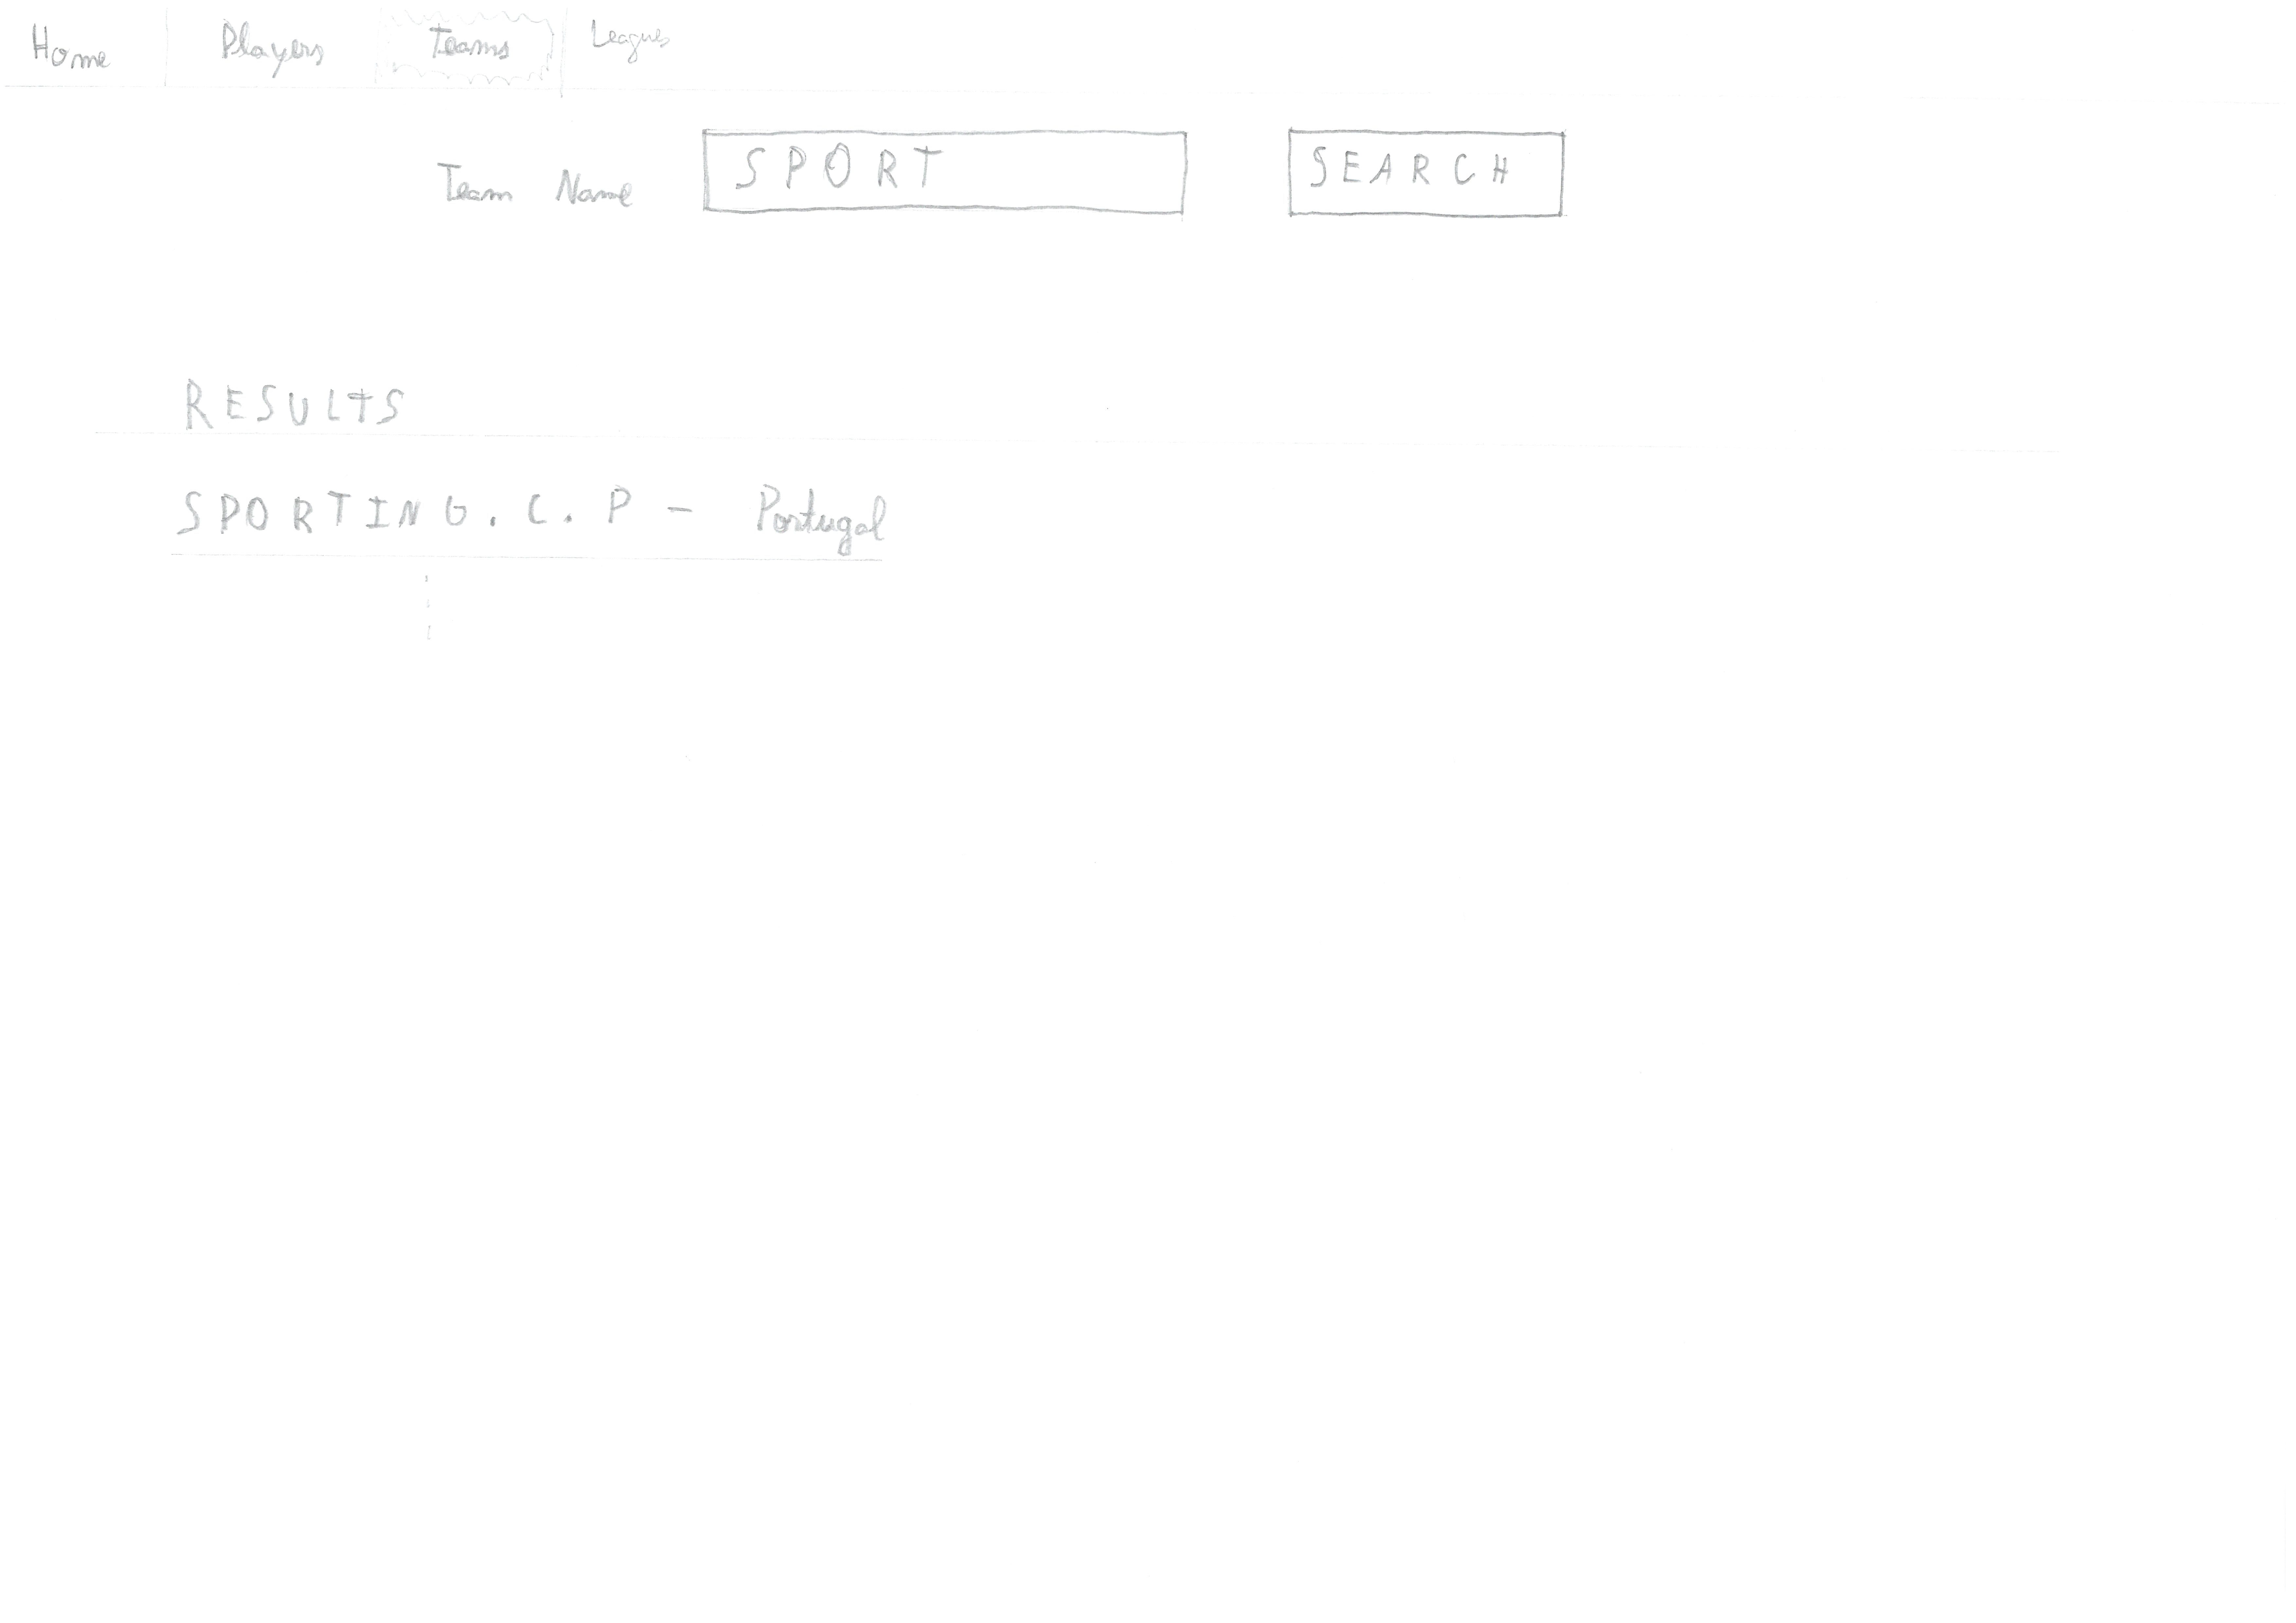 Home Players Teams Leagues
Team Name SPORT SEARCH
RESULTS
SPORTING.C.P - Portugal